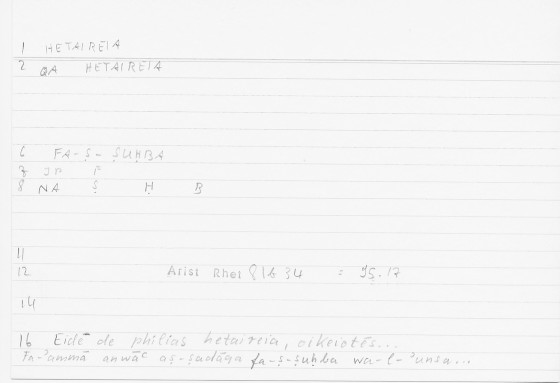 1 HETAIREIA
2 QA HETAIREIA
6 FA-Ṣ-ṢUḤBA
7 JP F
8 NA Ṣ Ḥ B
11
12 Arist Rhet 81b34 = 95.17
14
16 Eidē de philias hetaireia, oikeiotēs...
Fa-ʾammā anwāʿ aṣ-ṣadāqa fa-ṣ-ṣuḥba wa-l-ʾunsa...